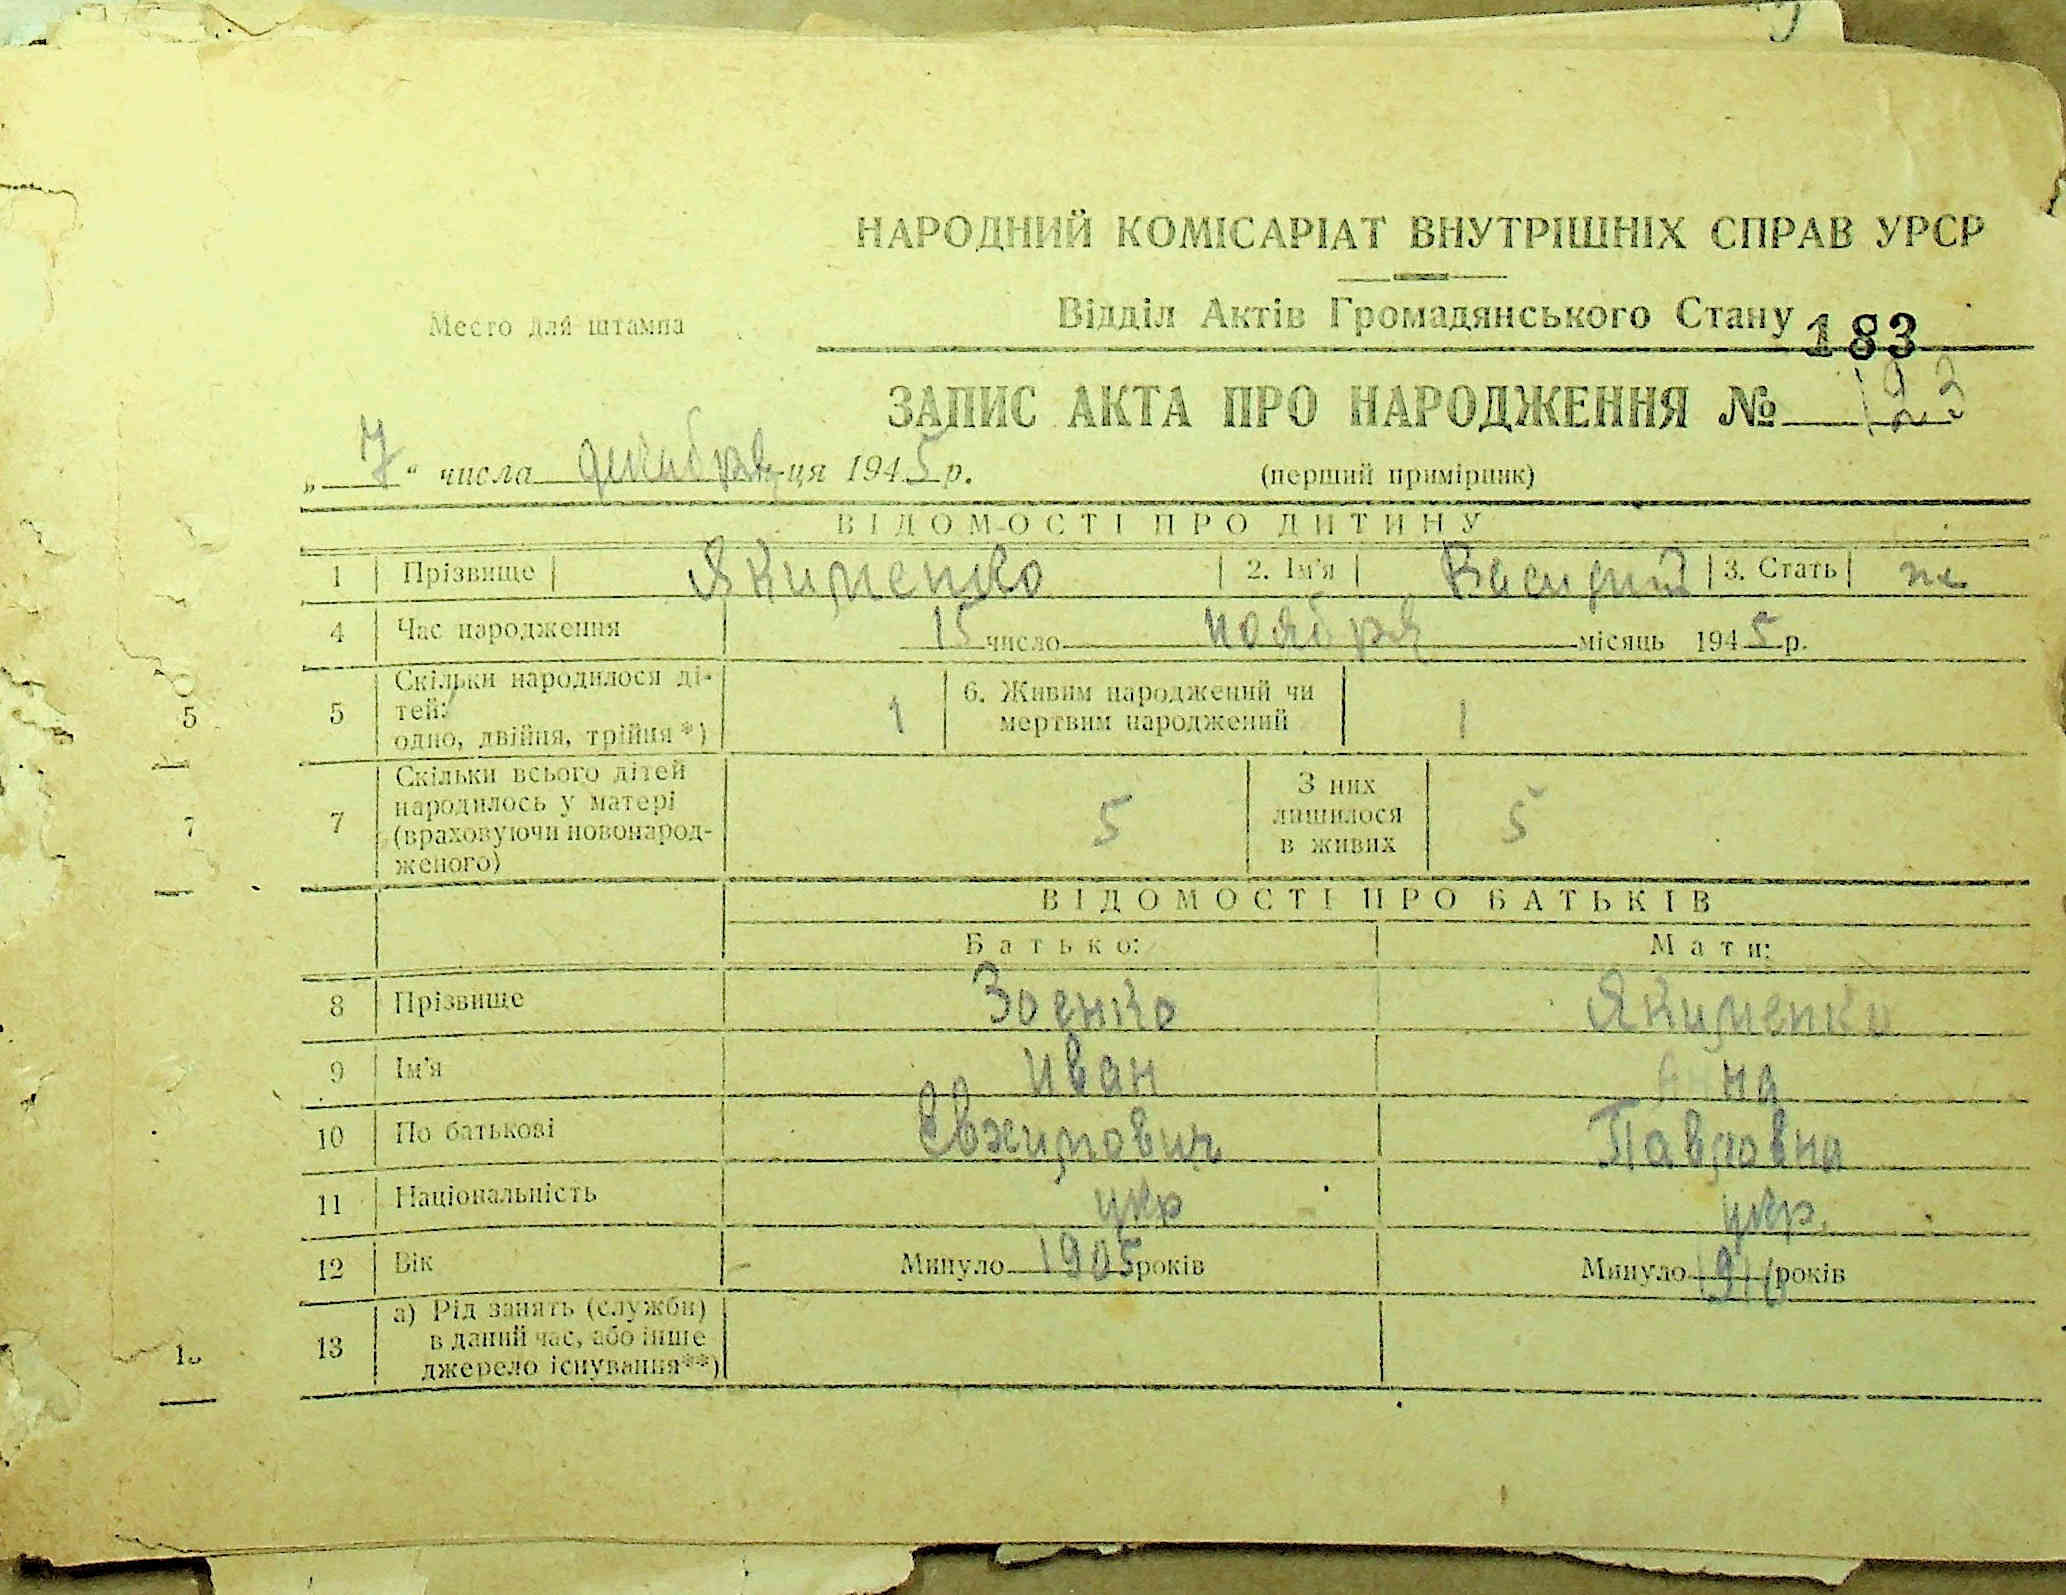 НАРОДНИЙ КОМІСАРІАТ ВНУТРІШНІХ СПРАВ УРСР
Відділ Актів Громадянського Стану
Место для штампа
183
ЗАПИС АКТА ПРО НАРОДЖЕННЯ №
„ 7 “ числа декабря ц-ця 1945 р. (перший примірник)
ВІДОМОСТІ ПРО ДИТИНУ
1 Прізвище Якименко 2. Ім'я Василий 3. Стать
4 Час народження 15 число ноября місяць 1945 р.
5 Скільки народилося ді-
тей:
одно, двійня, трійня *) 1 6. Живим народжений чи
мертвим народжений 1
7 Скільки всього дітей
народилось у матері
(враховуючи новонарод-
женого) 5 З них
лишилося
в живих 5
ВІДОМОСТІ ПРО БАТЬКІВ
Батько: Мати:
8 Прізвище Зоенко Якименко
9 Ім'я Иван Анна
10 По батькові Павловна
11 Національність укр укр.
12 Вік Минуло 1905 років Минуло 1910 років
13 а) Рід занять (служби)
в даний час, або інше
джерело існування**)
5
7